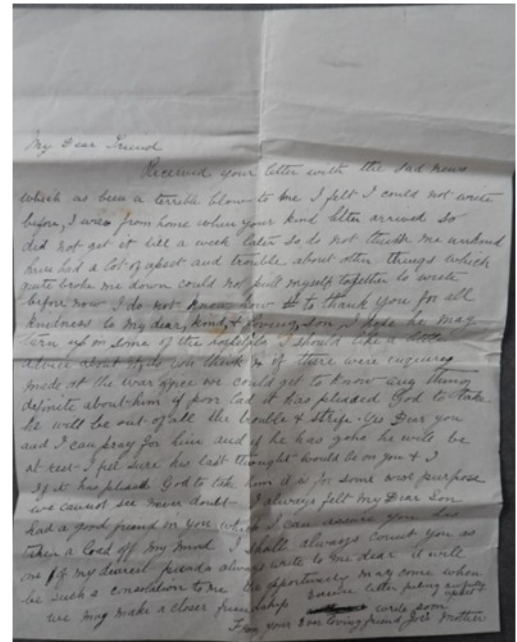 My Dear Friend
Received your letter with the sad news
which as been a terrible blow to me I felt I could not write
before, I was from home when your kind letter arrived so
did not get it till a week later so do not think me unkind
have had a lot of upset and trouble about other things which
quite broke me down could not pull myself together to write
before now I do not know how to thank you for all
kindness to my dear, kind, & loving, son, I hope he may
turn up in some of the hospitals I should like a little
advice about it, do you think if there were enquiries
made at the war office we could get to know any thing
definite about him if poor lad it has pleased God to take
he will be out of all the trouble & strife. Yes Dear you
and I can pray for him and if he has gone he will be
at rest I feel sure his last thought would be on you & I
If it has pleased God to take him it is for some purpose
we cannot see never doubt I always felt my Dear Son
had a good friend in you which I can assure you has
taken a load off my mind I shall always count you as
one of my dearest friends always write to me dear it will
be such a consolation to me the opportunity may come when
we may make a closer friendship
Excuse letter feeling awfully upset
write soon
From your Ever loving friend Joe's Mother